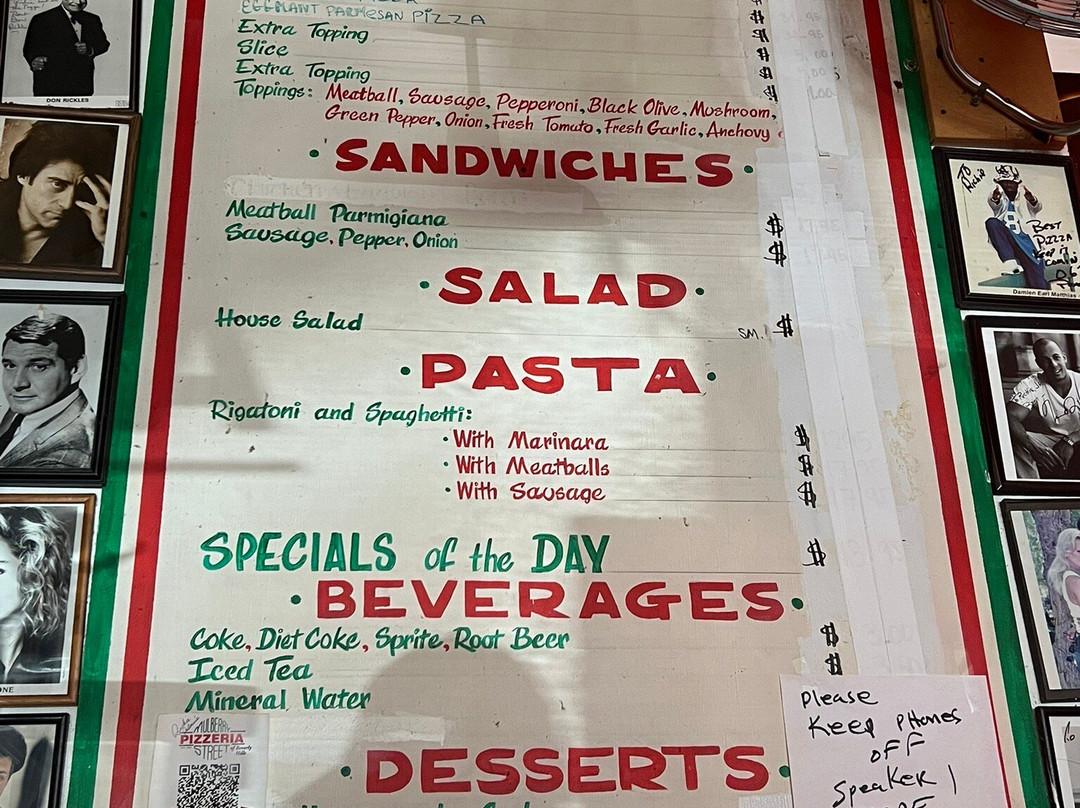 EGGPLANT PARMESAN PIZZA $
Extra Topping $
Slice $
Extra Topping $
Toppings: Meatball, Sausage, Pepperoni, Black Olive, Mushroom,
Green Pepper, Onion, Fresh Tomato, Fresh Garlic, Anchovy
• SANDWICHES •
Meatball Parmigiana $
Sausage, Pepper, Onion $
• SALAD •
House Salad SM. $
• PASTA •
Rigatoni and Spaghetti:
• With Marinara $
• With Meatballs $
• With Sausage $
SPECIALS of the DAY $
• BEVERAGES •
Coke, Diet Coke, Sprite, Root Beer $
Iced Tea $
Mineral Water
• DESSERTS •
MULBERRY
STREET
PIZZERIA
of Beverly Hills
Please
Keep PHones
oFF
Speaker!
DON RICKLES
To Richie
BEST
PIZZA
Keep it
comin'
Damien Earl Matthias